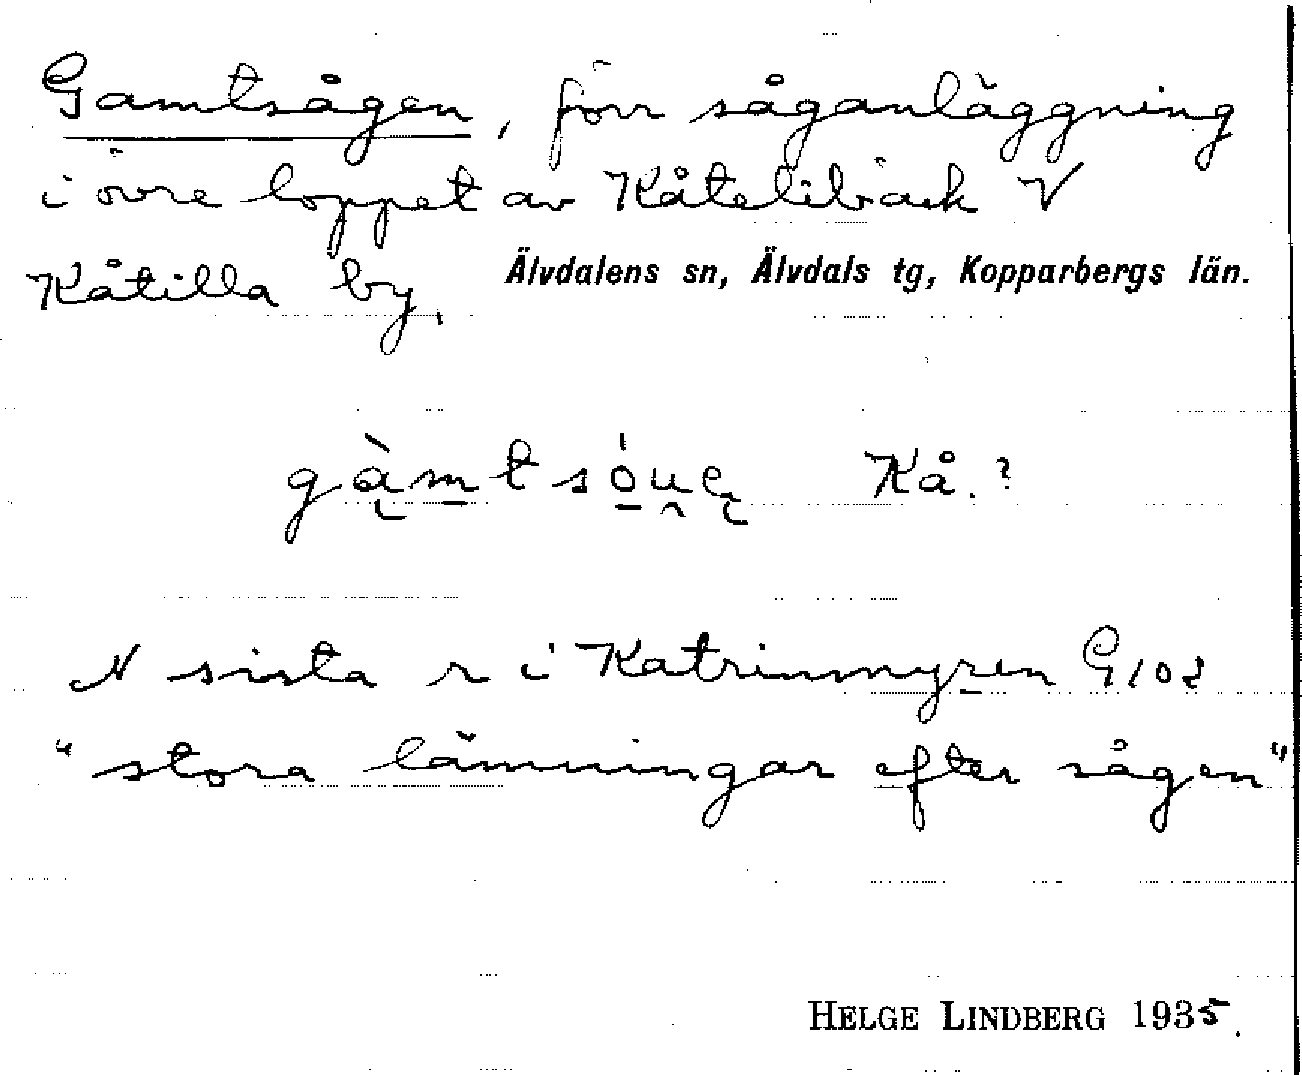 Gamtsågen, förr såganläggning
i övre loppet av Kåtelibäck V
Kåtilla by. Älvdalens sn, Älvdals tg, Kopparbergs län.
Kå.?
N sista r i Katrinmyren G 102
"stora lämningar efter sågen"
HELGE LINDBERG 1935.